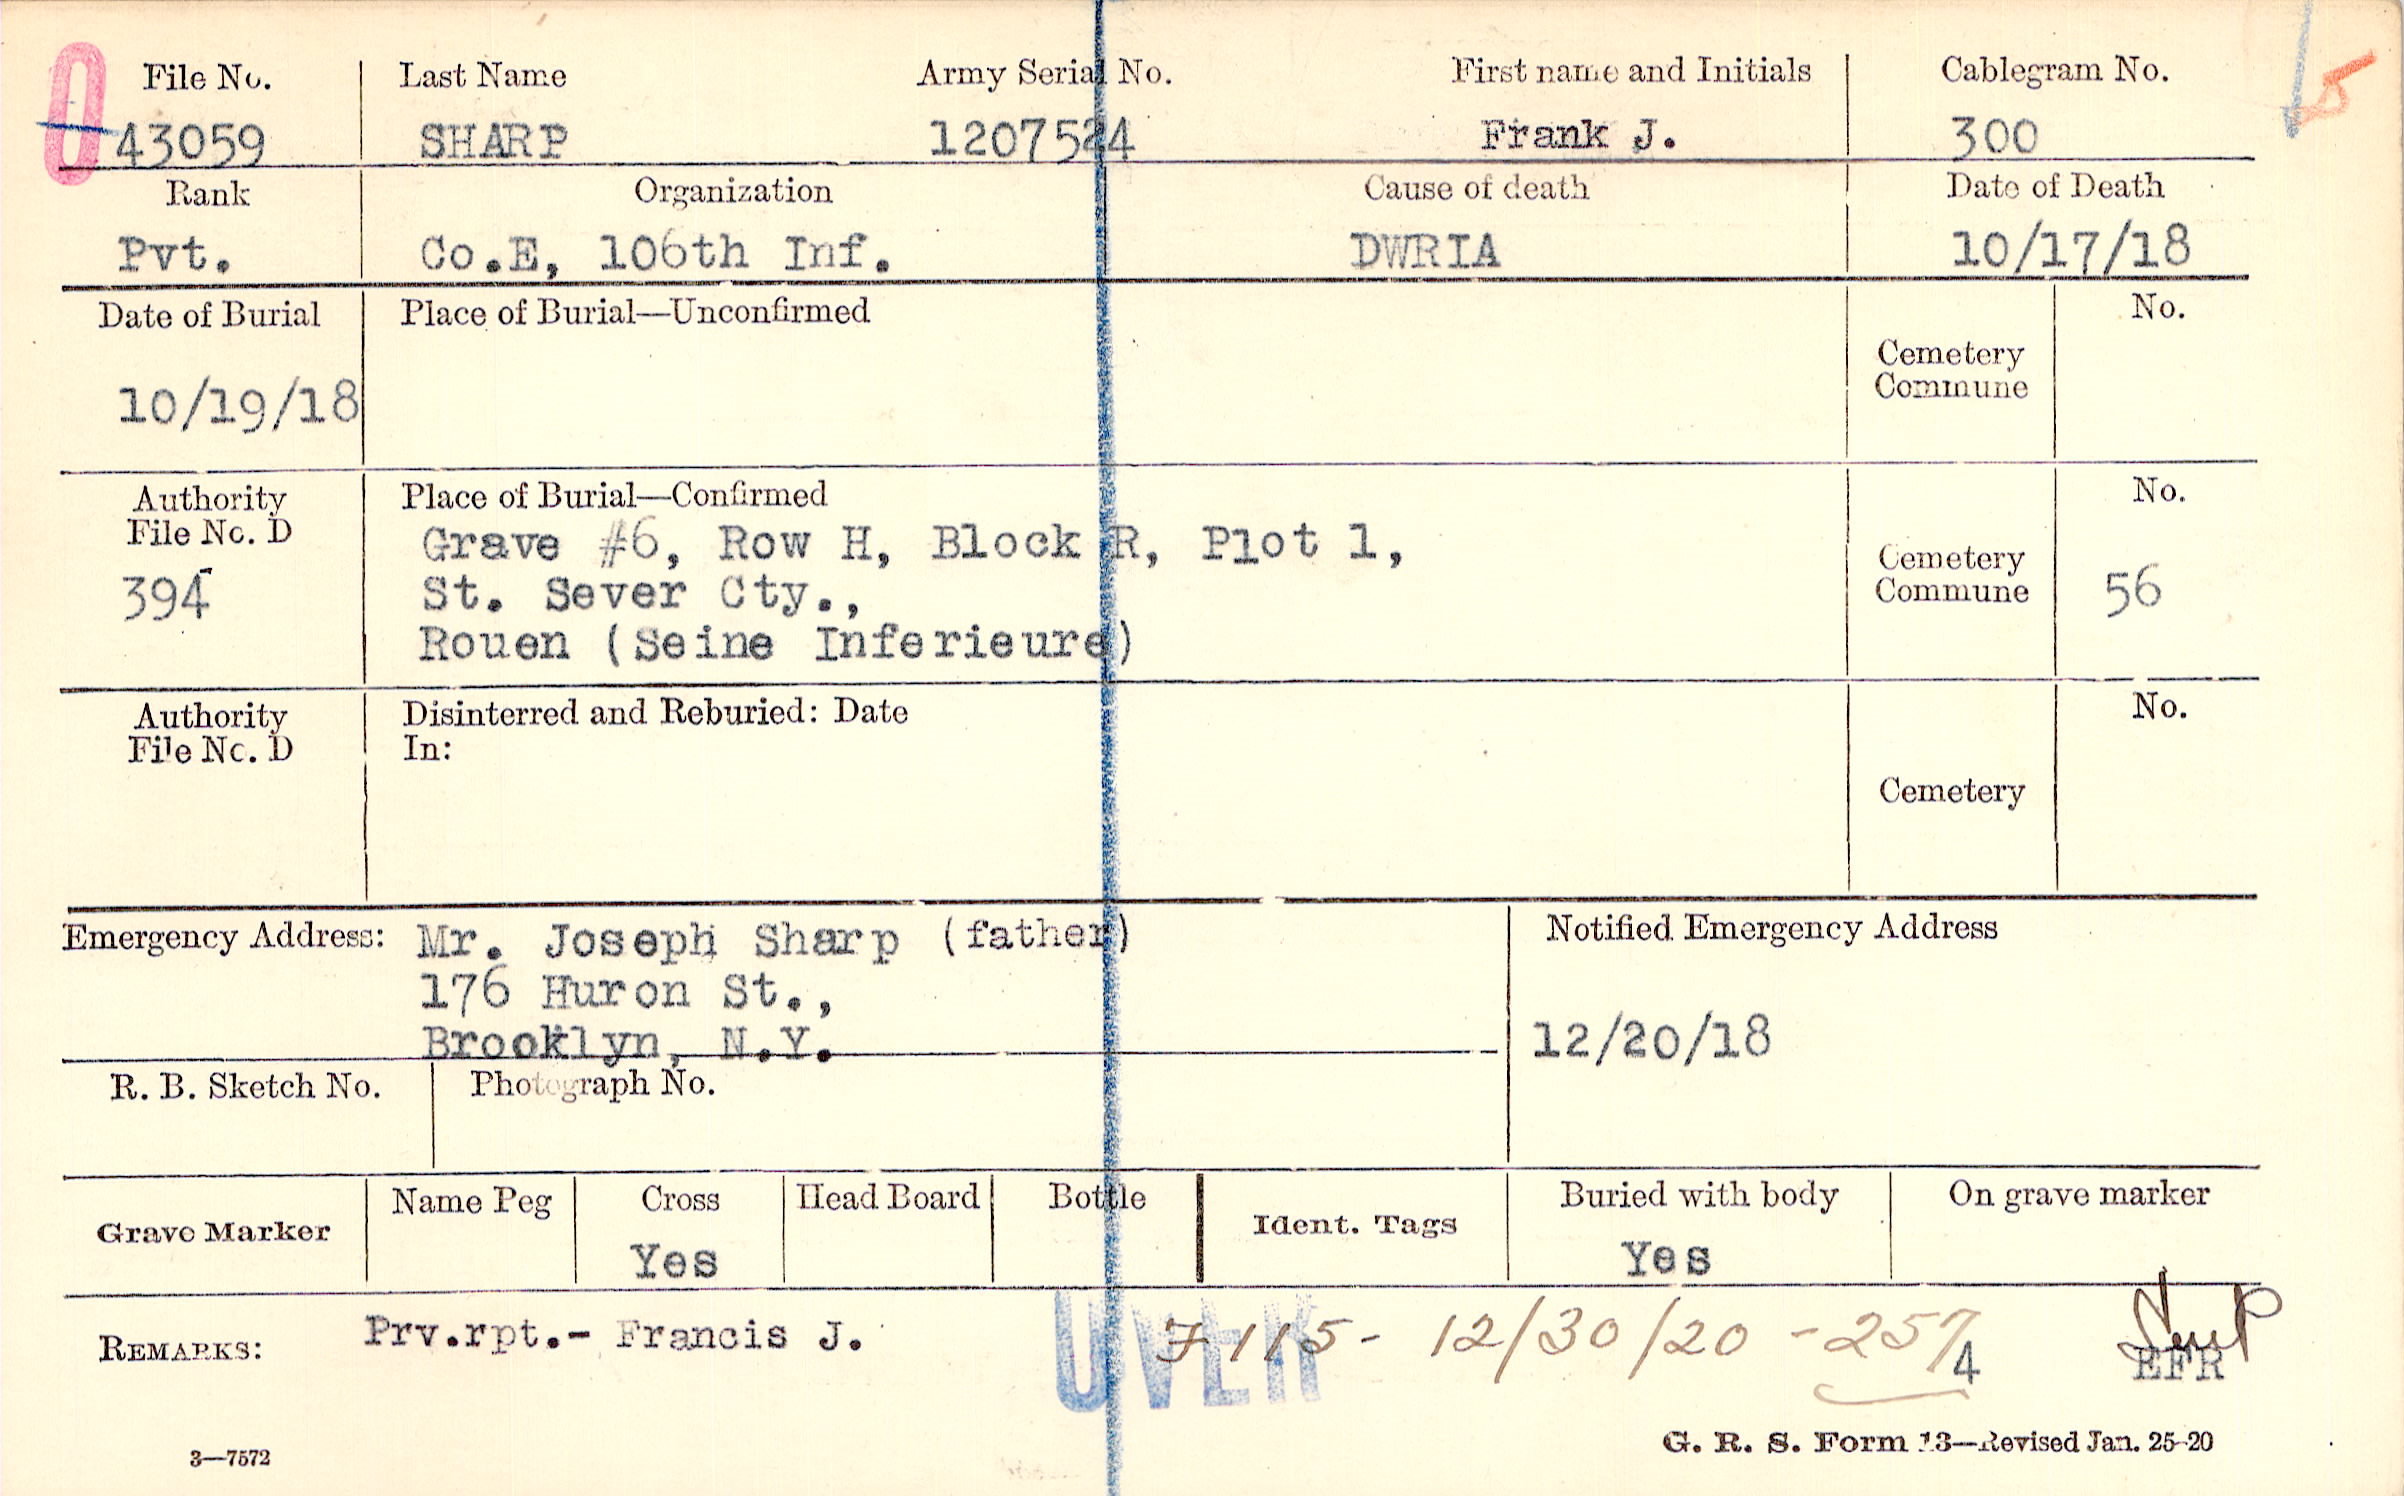 0
5
File No. Last Name Army Serial No. First name and Initials Cablegram No.
43059 SHARP 1207524 Frank J. 300
Rank Organization Cause of death Date of Death
Pvt. Co.E, 106th Inf. DWRIA 10/17/18
Date of Burial Place of Burial—Unconfirmed No.
Cemetery
Commune
10/19/18
Authority Place of Burial—Confirmed No.
File No. D
394
Grave #6, Row H, Block R, Plot 1,
St. Sever Cty.,
Rouen (Seine Inferieure)
Cemetery
Commune 56
Authority Disinterred and Reburied: Date No.
File No. D In:
Cemetery
Emergency Address: Mr. Joseph Sharp (father) Notified Emergency Address
176 Huron St.,
Brooklyn, N.Y. 12/20/18
R. B. Sketch No. Photograph No.
Grave Marker Name Peg Cross Head Board Bottle Ident. Tags Buried with body On grave marker
Yes Yes
REMARKS: Prv.rpt.- Francis J.
OVER
F115- 12/30/20 -257
4 EFR
3—7572 G. R. S. Form 13—Revised Jan. 25-20